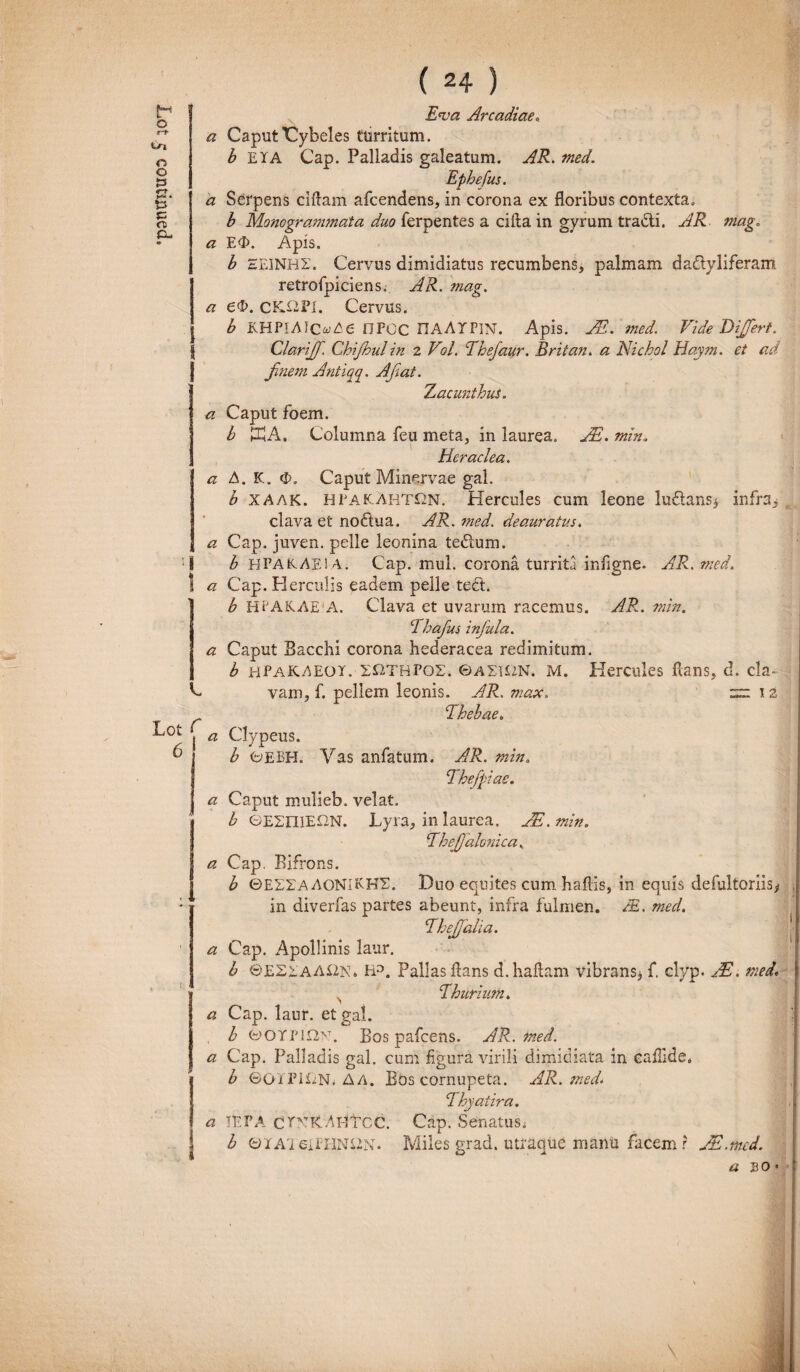 ( 24 )
Lot 5 continued.
Eva Arcadiae.
a Caput Cybeles turritum.
b ΕΥΑ Cap. Palladis galeatum. AR. med.
Ephesus.
a Serpens cistam ascendens, in corona ex floribus contexta.
b Monogrammata duo serpentes a cista in gyrum tracti. AR. mag.
a ΕΦ. Apis.
b ΞΕΙΝΗΣ. Cervus dimidiatus recumbens, palmam dactyliferam
retrospiciens. AR. mag.
a ЄΦ. CΚΩΡΙ. Cervus.
b ΚΗΡΙΛΙCωΔЄ ΠΡΟC ΠΑΛΥΡΙΝ. Apis. Æ. med. Vide Dissert.
Clariss. Chishulin 2 Vol. Thesaur. Britan. a Nichol Haym. et ad
finem Antiqq. Asiat.
Zacunthus.
a Caput foem.
b ΖΑ. Columna seu meta, in laurea. Æ. min.
Heraclea.
a Δ. Κ. Φ. Caput Minervae gal.
b ΧΑΛΚ. ΗΡΑΚΛΗΤΩΝ. Hercules cum leone luctans, infra,
clava et noctua. AR. med. deauratus.
a Cap. juven. pelle leonina tectum.
b ΗΡΑΚΛΕΙΑ. Cap. mul. coronâ turritâ insigne. AR. med.
a Cap. Herculis eadem pelle tect.
b ΗΡΑΚΛΕΙΑ. Clava et uvarum racemus. AR. min.
Thasus insula.
a Caput Bacchi corona hederacea redimitum.
b ΗΡΑΚΛΕΟΥ. ΣΩΤΗΡΟΣ. ΘΑΣΙΩΝ. Μ. Hercules stans, d. cla-
vam, s. pellem leonis. AR. max. = 12
Thebae.
Lot 6
a Clypeus.
b ΘΕΒΗ. Vas ansatum. AR. min.
Thespiae.
a Caput mulieb. velat.
b ΘΕΣΠΙΕΩΝ. Lyra, in laurea. Æ. min.
Thessalonica.
a Cap. Bifrons.
b ΘΕΣΣΑΛΟΝΙΚΗΣ. Duo equites cum hastis, in equis desultoriis,
in diversas partes abeunt, infra fulmen. Æ. med.
Thessalia.
a Cap. Apollinis laur.
b ΘΕΣΣΑΛΩΝ. ΗΡ. Pallas stans d. hastam vibrans, s. clyp. Æ. med.
Thurium.
a Cap. laur. et gal.
b ΘΟΥΡΙΩΝ. Bos pascens. AR. med.
a Cap. Palladis gal. cum figura virili dimidiata in casside.
b ΘΟΥΡΙΩΝ. ΔΛ. Bos cornupeta. AR. med.
Thyatira.
a ΙΕΡΑ CΥΝΚΛΗΤCC. Cap. Senatus.
b ΘΥΑΤЄΙΡΗΝΩΝ. Miles grad. utraque manu facem? Æ. med.
a BO